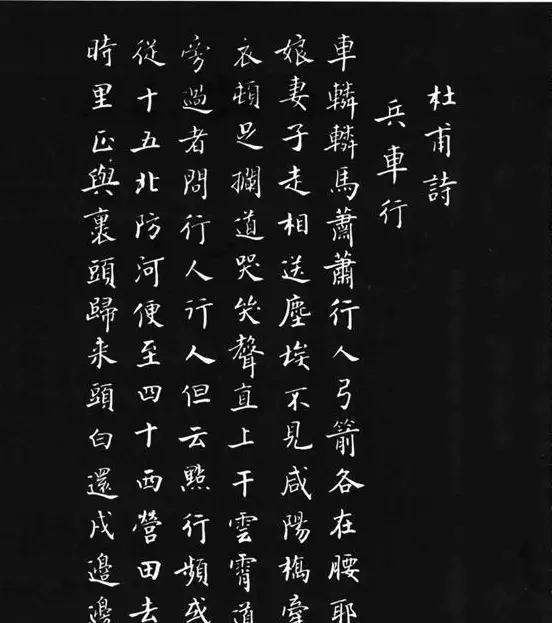 杜甫詩
兵車行
車轔轔馬蕭蕭行人弓箭各在腰耶
娘妻子走相送塵埃不見咸陽橋牽
衣頓足攔道哭笑聲直上干雲霄道
旁過者問行人行人但云點行頻或
從十五北防河便至四十西營田去
時里正與裹頭歸来頭白還戍邊邊